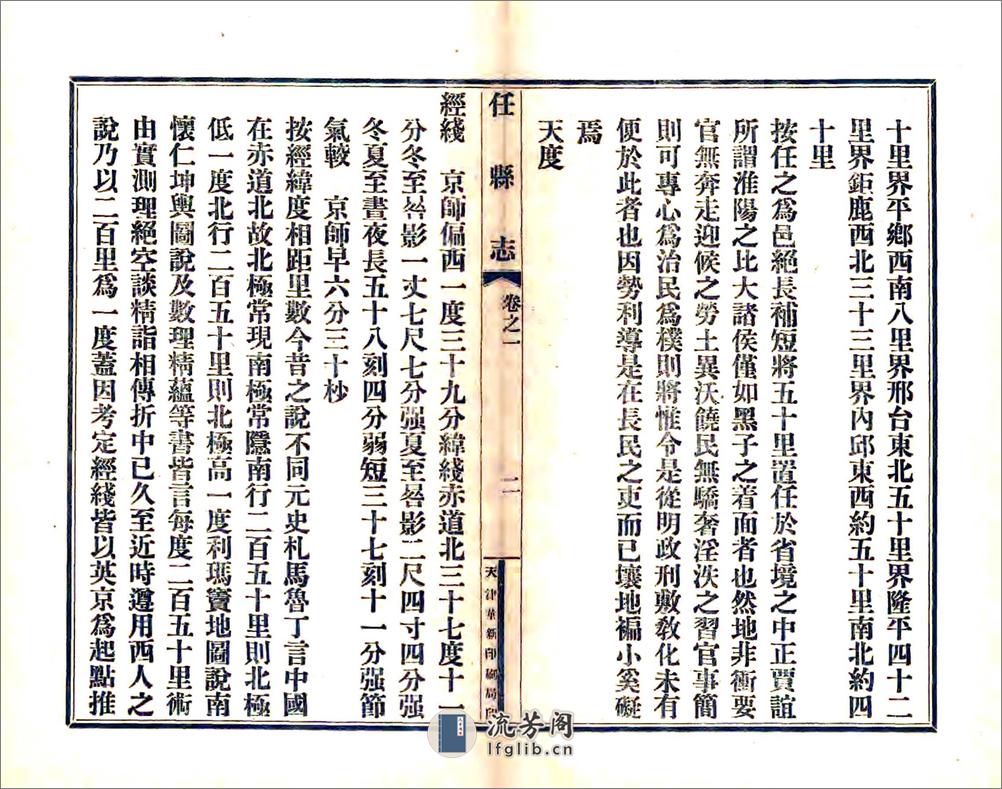 十里界平鄉西南八里界邢台東北五十里界隆平四十二
里界鉅鹿西北三十三里界內邱東西約五十里南北約四
十里
按任之爲邑絕長補短將五十里置任於省境之中正賈誼
所謂淮陽之比大諸侯僅如黑子之着面者也然地非衝要
官無奔走迎候之勞土異沃饒民無驕奢淫泆之習官事簡
則可專心爲治民爲樸則將惟令是從明政刑敷敎化未有
便於此者也因勢利導是在長民之吏而已壤地褊小奚礙
焉
天度
任縣志
卷之一
二
天津華新印刷局印
經綫 京師偏西一度三十九分緯綫赤道北三十七度十一
分冬至晷影一丈七尺七分强夏至晷影二尺四寸四分强
冬夏至晝夜長五十八刻四分弱短三十七刻十一分强節
氣較 京師早六分三十杪
按經緯度相距里數今昔之說不同元史札馬魯丁言中國
在赤道北故北極常現南極常隱南行二百五十里則北極
低一度北行二百五十里則北極高一度利瑪竇地圖說南
懷仁坤輿圖說及數理精蘊等書皆言每度二百五十里術
由實測理絕空談精詣相傳折中已久至近時遵用西人之
說乃以二百里爲一度蓋因考定經綫皆以英京爲起點推
流芳阁
lfglib.cn